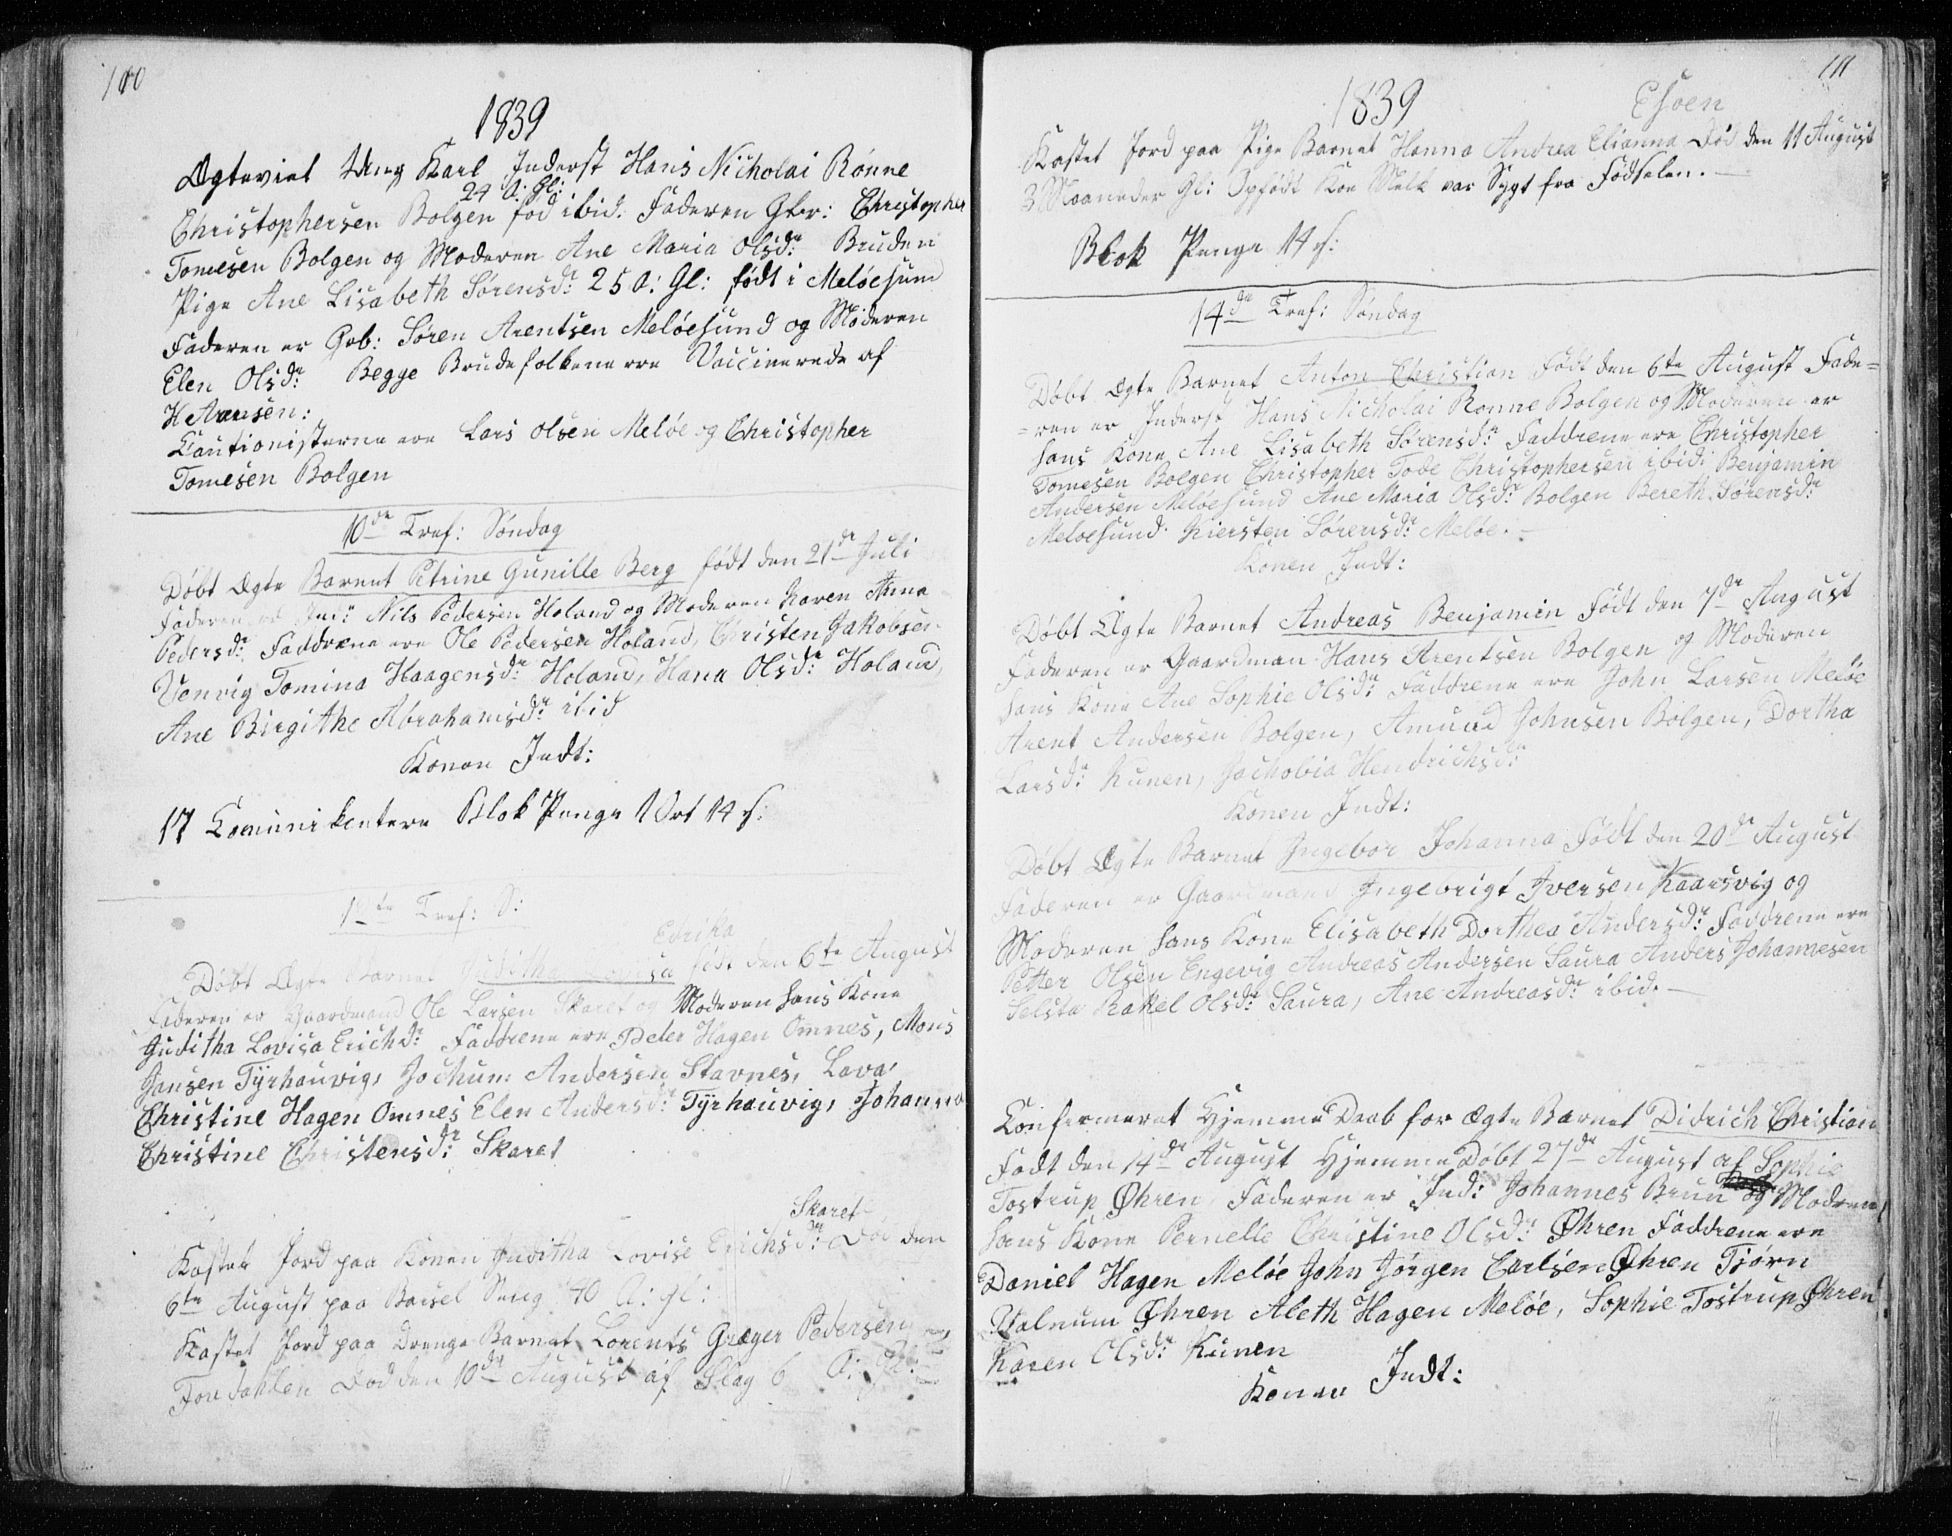 110
1839
Ægteviet Ung Karl Inderst Hans Nicholai Rønne
24 A: Gl:
Christophersen Bolgen fød ibid: Faderen Gbr: Christopher
Tomesen Bolgen og Moderen Ane Maria Olsdr: Bruden
Pige Ane Lisabeth Sørensdr: 25 A: Gl: født i Meløesund
Faderen er Gbr: Søren Arentsen Meløesund og Moderen
Elen Olsdr: Begge Brudefolkene ere Vaccinerede af
H
Cautionisterne ere Lars Olsen Meløe og Christopher
Tomesen Bolgen
10de Tref: Søndag
Døbt Ægte Barnet Petrine Gunille Berg født den 21de Juli
Faderen er Ind: Nils Pedersen Holand og Moderen Karen Anna
Pedersdr: Faddrene ere Ole Pedersen Holand, Christen Jakobsen
Venvig Tomina Haagensdr: Holand, Hana Olsdr: Holand,
Ane Birgithe Abrahamsdr: ibid
Konen Indt:
17 Comunikentere Blok Penge 1 Ort 14 s:
Tref: S:
Edrika
Døbt Ægte Barnet Juditha Lovisa født den 6te August
Faderen er Gaardmand Ole Larsen Skaret og Moderen hans Kone
Juditha Lovisa Erichdr: Faddrene ere Peter Hagen Omnes, Mons
Jansen Tÿrhauvig, Jochum Andersen Stavnes, Lava
Christine Hagen Omnes Elen Andersdr: Tÿrhauvig, Johanna
Christine Christensdr: Skaret
Skaret
Kastet Jord paa Konen Juditha Lovise Erichsdr: Død den
6te August paa Barsel Seng 40 A: gl:
Kastet Jord paa Drenge Barnet Lorents Græger Pedersen
Død den 10de August af Slag 6 A: Gl:
111
1839
Esøen
Kastet Jord paa Pige Barnet Hanna Andrea Elianna Død den 11 August
3 Maaneder Gl: Opfødt Koe Melk var Sygt fra Fødselen.
Blok Penge 14 s:
14de Tref: Søndag
Døbt Ægte Barnet Anton Christian født den 6te August Fade=
=ren er Inderst Hans Nicholai Rønne Bolgen og Moderen er
hans Kone Ane Lisabeth Sørensdr: Faddrene ere Christopher
Tomesen Bolgen Christopher Tode Christophersen ibid: Benjamin
Andersen Meløesund Ane Maria Olsdr: Bolgen Bereth Sørensdr:
Meløesund Kiersten Sørensdr: Meløe.
Konen Indt:
Døbt Ægte Barnet Andreas Benjamin Født den 7de August
Faderen er Gaardman Hans Arentsen Bolgen og Moderen
hans Kone Ane Sophie Olsdr: Faddrene ere John Larsen Meløe
Arent Andersen Bolgen, Amund Johnsen Bolgen, Dortha
Larsdr: Kunen, Jachobia Hendrichsdr:
Konen Indt:
Døbt Ægte Barnet Ingebor Johanna Født den 20de August
Faderen er Gaardmand Ingebrigt Iversen Kaarsvig og
Moderen hans Kone Elisabeth Dorthea Andersdr: Faddrene ere
Petter Olsen Engevig Andreas Andersen Saura Anders Johannesen
Selsta Rakel Olsdr: Saura, Ane Andreasdr: ibid.
Confermeret Hjemme Daab for Ægte Barnet Didrich Christian
Født den 14de August Hjemme Døbt 27de August af Sophie
Tostrup Øhren Faderen er Ind: Johannes Brun og Moderen
hans Kone Pernelle Christine Olsdr: Øhren Faddrene ere
Daniel Hagen Meløe John Jørgen Carlsen Øhren Tjørn
Valnum Øhren Aleth Hagen Meløe, Sophie Tostrup Øhren
Karen Olsdr: Kunen
Konen Indt: